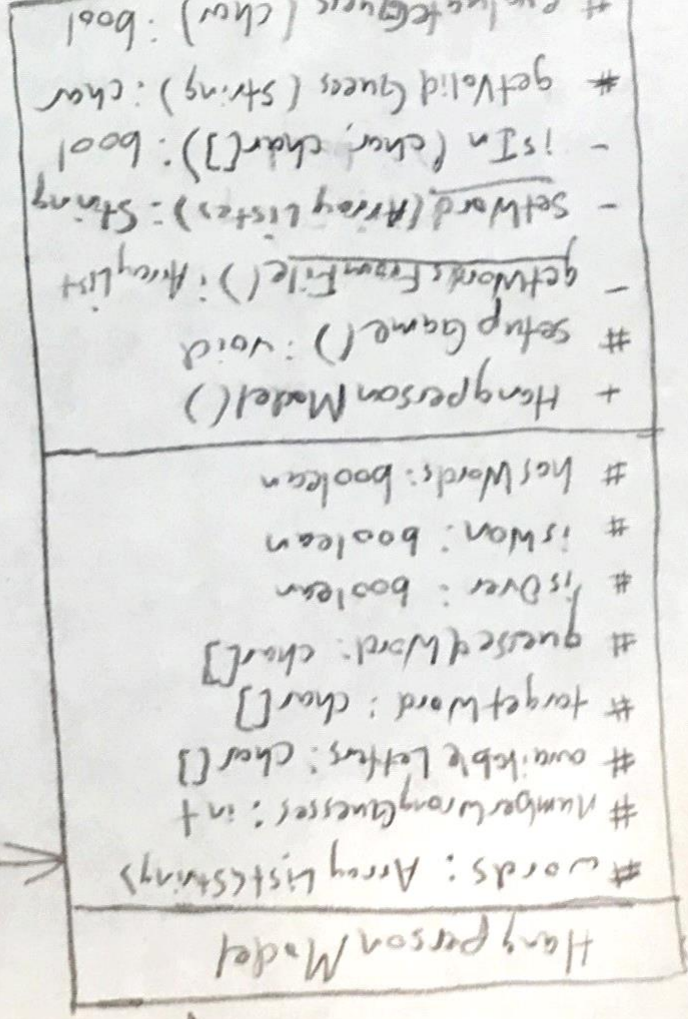 HangpersonModel
# words: ArrayList<String>
# numberWrongGuesses: int
# availableLetters: char[]
# targetWord: char[]
# guessedWord: char[]
# isOver: boolean
# isWon: boolean
# hasWords: boolean
+ HangpersonModel()
# setupGame(): void
- getWordsFromFile(): ArrayList
- setWord(ArrayList<s>): String
- isIn(char, char[]): bool
# getValidGuess(String): char
# (char): bool